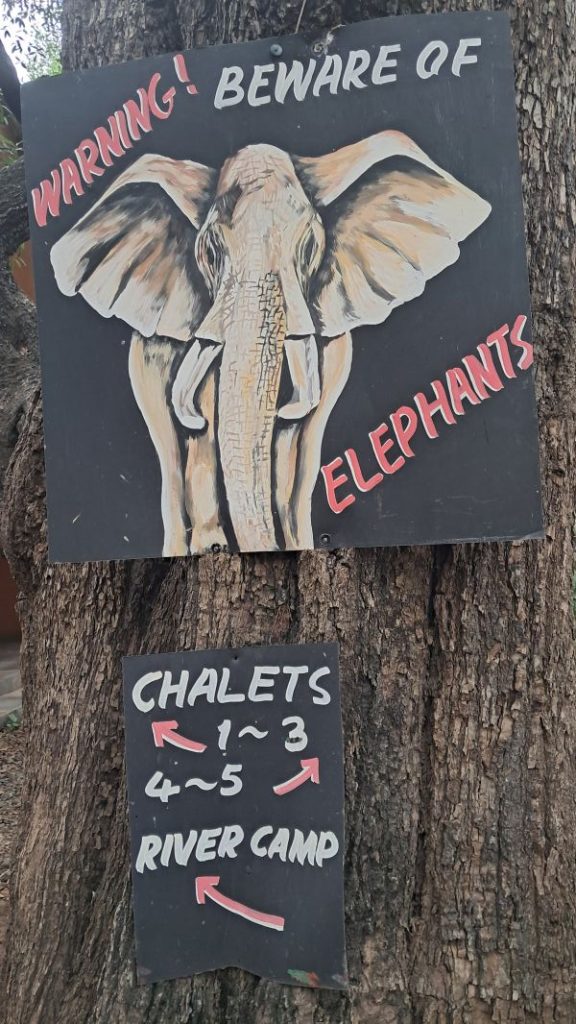 WARNING! BEWARE OF
ELEPHANTS
CHALETS
1~3
4~5
RIVER CAMP